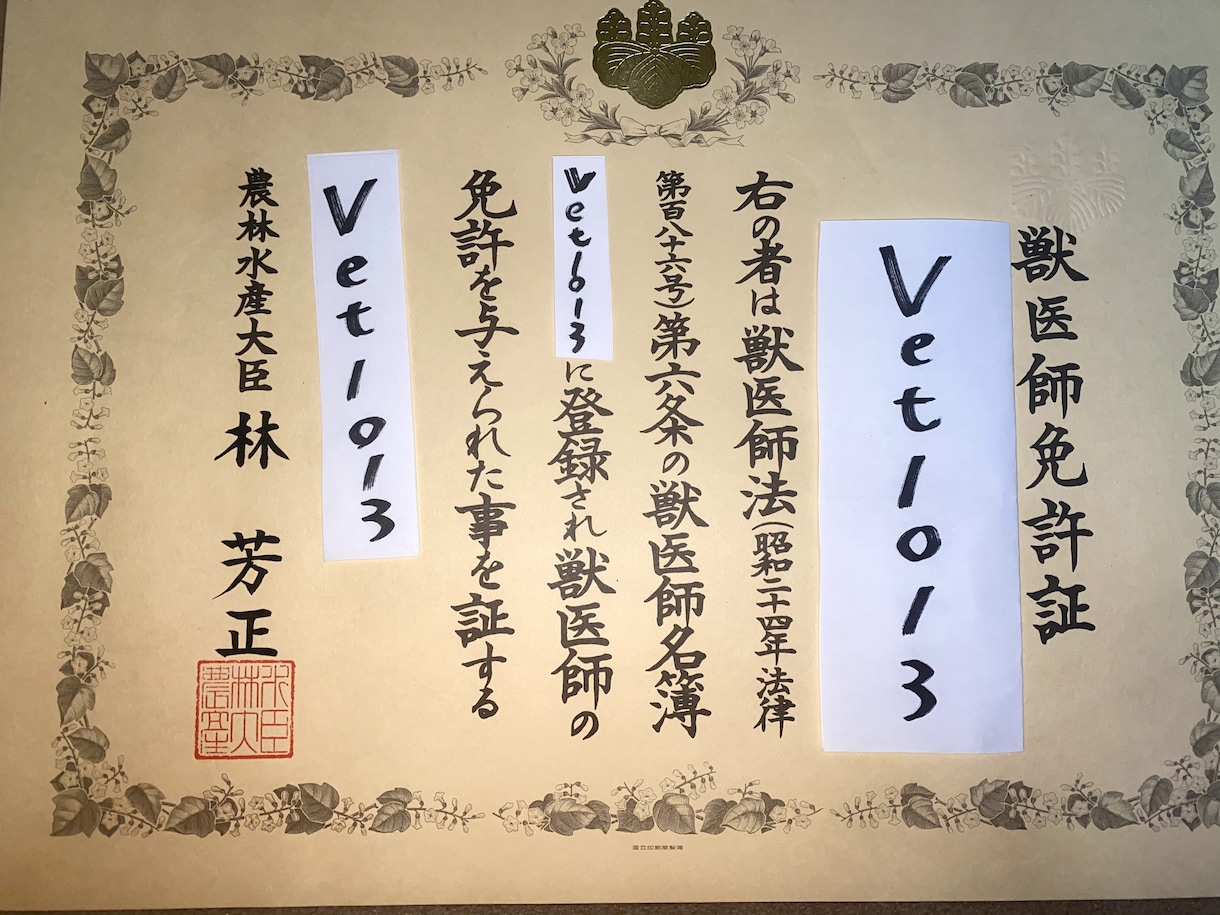 獣医師免許証
Vet1013
右の者は獣医師法(昭和二十四年法律
第百八十六号)第六条の獣医師名簿
Vet1013に登録され獣医師の
免許を与えられた事を証する
Vet1013
農林水産大臣 林 芳正
国立印刷局製造